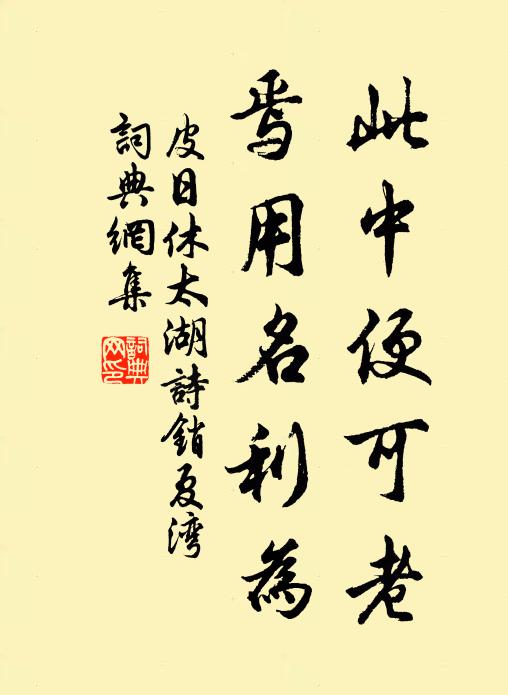 此中便可老
焉用名利為
皮日休太湖詩銷夏湾
詞典網集
詞典网印